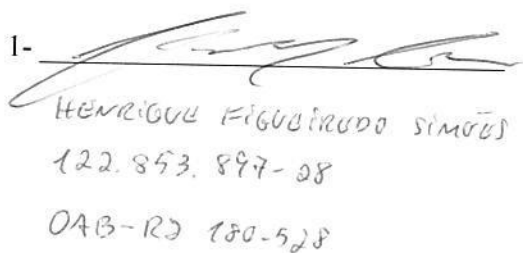 1-
HENRIQUE FIGUEIREDO SIMÕES
122.853.897-28
OAB-RJ 180-528